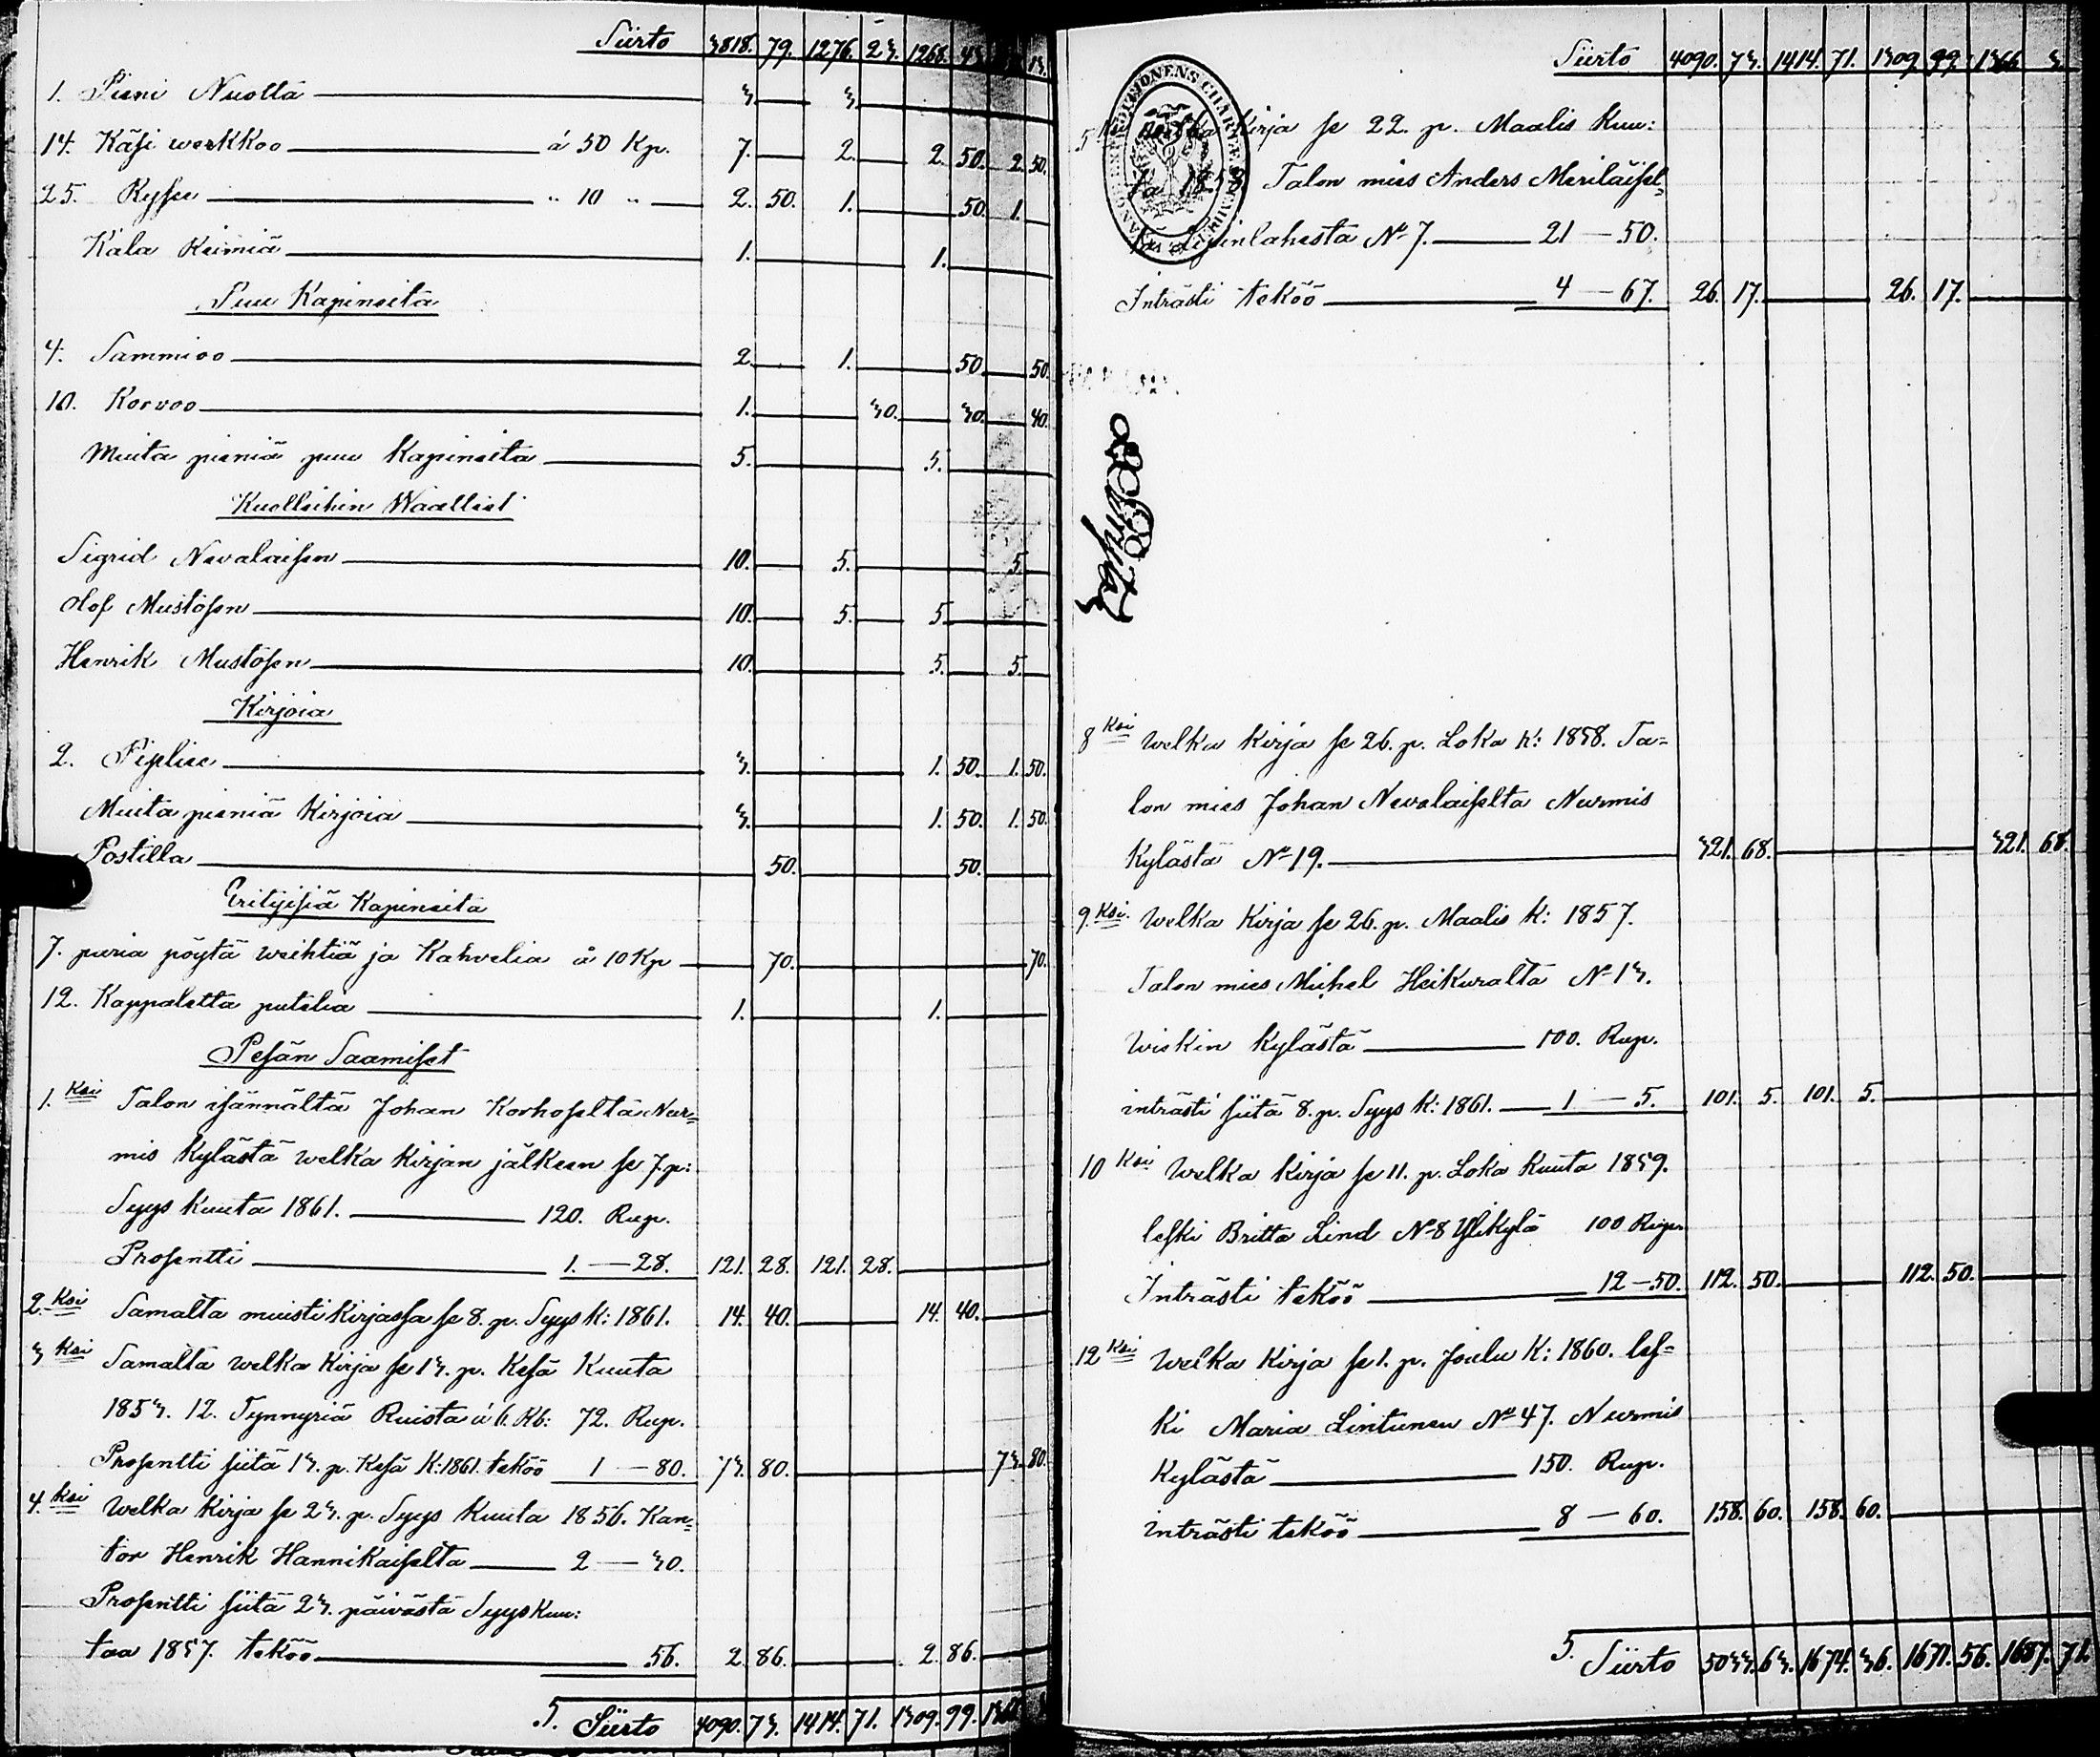 Siirto 3818. 79. 1276. 23. 1268. 13.
1. Pieni Nuotta 3. 3.
14. Käsi werkkoo á 50 Kp. 7. 2. 2. 50. 2. 50.
25. Rysee " 10 " 2. 50. 1. 50. 1.
Kala Keimiä 1. 1.
Puu Kapineita
4. Sammioo 2. 1. 50. 50.
10. Korvoo 1. 30. 30. 40.
Muita pieniä puu Kapineita 5. 5.
Kuolleihin Waatteet
Sigrid Nevalaisen 10. 5. 5.
Olof Mustosen 10. 5. 5.
Henrik Mustosen 10. 5. 5.
Kirjoia
2. Pipliae 3. 1. 50. 1. 50.
Muita pieniä Kirjoia 3. 1. 50. 1. 50.
Postilla 50. 50.
Erityisiä Kapineita
7. paria pöytä weihtiä ja Kahvelia á 10 Kp 70. 70.
12. Kappaletta putelia 1. 1.
Pesän Saamiset
1. Ksi Talon isännältä Johan Korhoselta Nur=
mis Kylästä welka Kirjan jälkeen se 7. p:
Syys Kuuta 1861. 120. Rup.
Prosentti 1. — 28. 121. 28. 121. 28.
2. Ksi Samalta muisti Kirjassa se 8. p. Syys k: 1861. 14. 40. 14. 40.
3 Ksi Samalta welka Kirja se 13. p. Kesä Kuuta
1853. 12. Tynnyriä Ruista á 6. Rb: 72. Rup.
Prosentti siitä 13. p. Kesä K: 1861. teköö 1 — 80. 73. 80. 73. 80.
4. Ksi Welka Kirja se 23. p. Syys Kuuta 1856. Kan=
tor Henrik Hannikaiselta 2 — 30.
Prosentti siitä 23. päivästä Syys Kuu:
taa 1857. teköö 56. 2. 86. 2. 86.
5. Siirto 4090. 73. 1414. 71. 1309. 99.
Siirto 4090. 73. 1414. 71. 1309. 99. 1366. 3.
5 Ksi Kirja se 22. p. Maalis Kuu:
ta 1858. Talon mies Anders Meriläisel=
tä N° 7. 21 — 50.
Inträsti teköö 4 — 67. 26. 17. 26. 17.
8 Ksi Welka Kirja se 26. p. Loka K: 1858. Ta=
lon mies Johan Nevalaiselta Nurmis
Kylästä N° 19. 321. 68. 321. 68.
9. Ksi. Welka Kirja se 26. p. Maalis K: 1857.
Talon mies Michel Heikuralta N° 13.
Wiekin Kylästä 100. Rup.
inträsti siitä 8. p. Syys K: 1861. 1 — 5. 101. 5. 101. 5.
10 Ksi Welka Kirja se 11. p. Loka Kuuta 1859.
leski Britta Lind N° 8 Ylikylä 100 Rup.
Inträsti teköö 12 — 50. 112. 50. 112. 50.
12 Ksi Welka Kirja se 1. p. Joulu K: 1860. les=
ki Maria Lintunen N° 47. Nurmis
Kylästä 150. Rup.
inträsti teköö 8 — 60. 158. 60. 158. 60.
5. Siirto 5033. 63. 1674. 36. 1671. 56. 1687. 71.